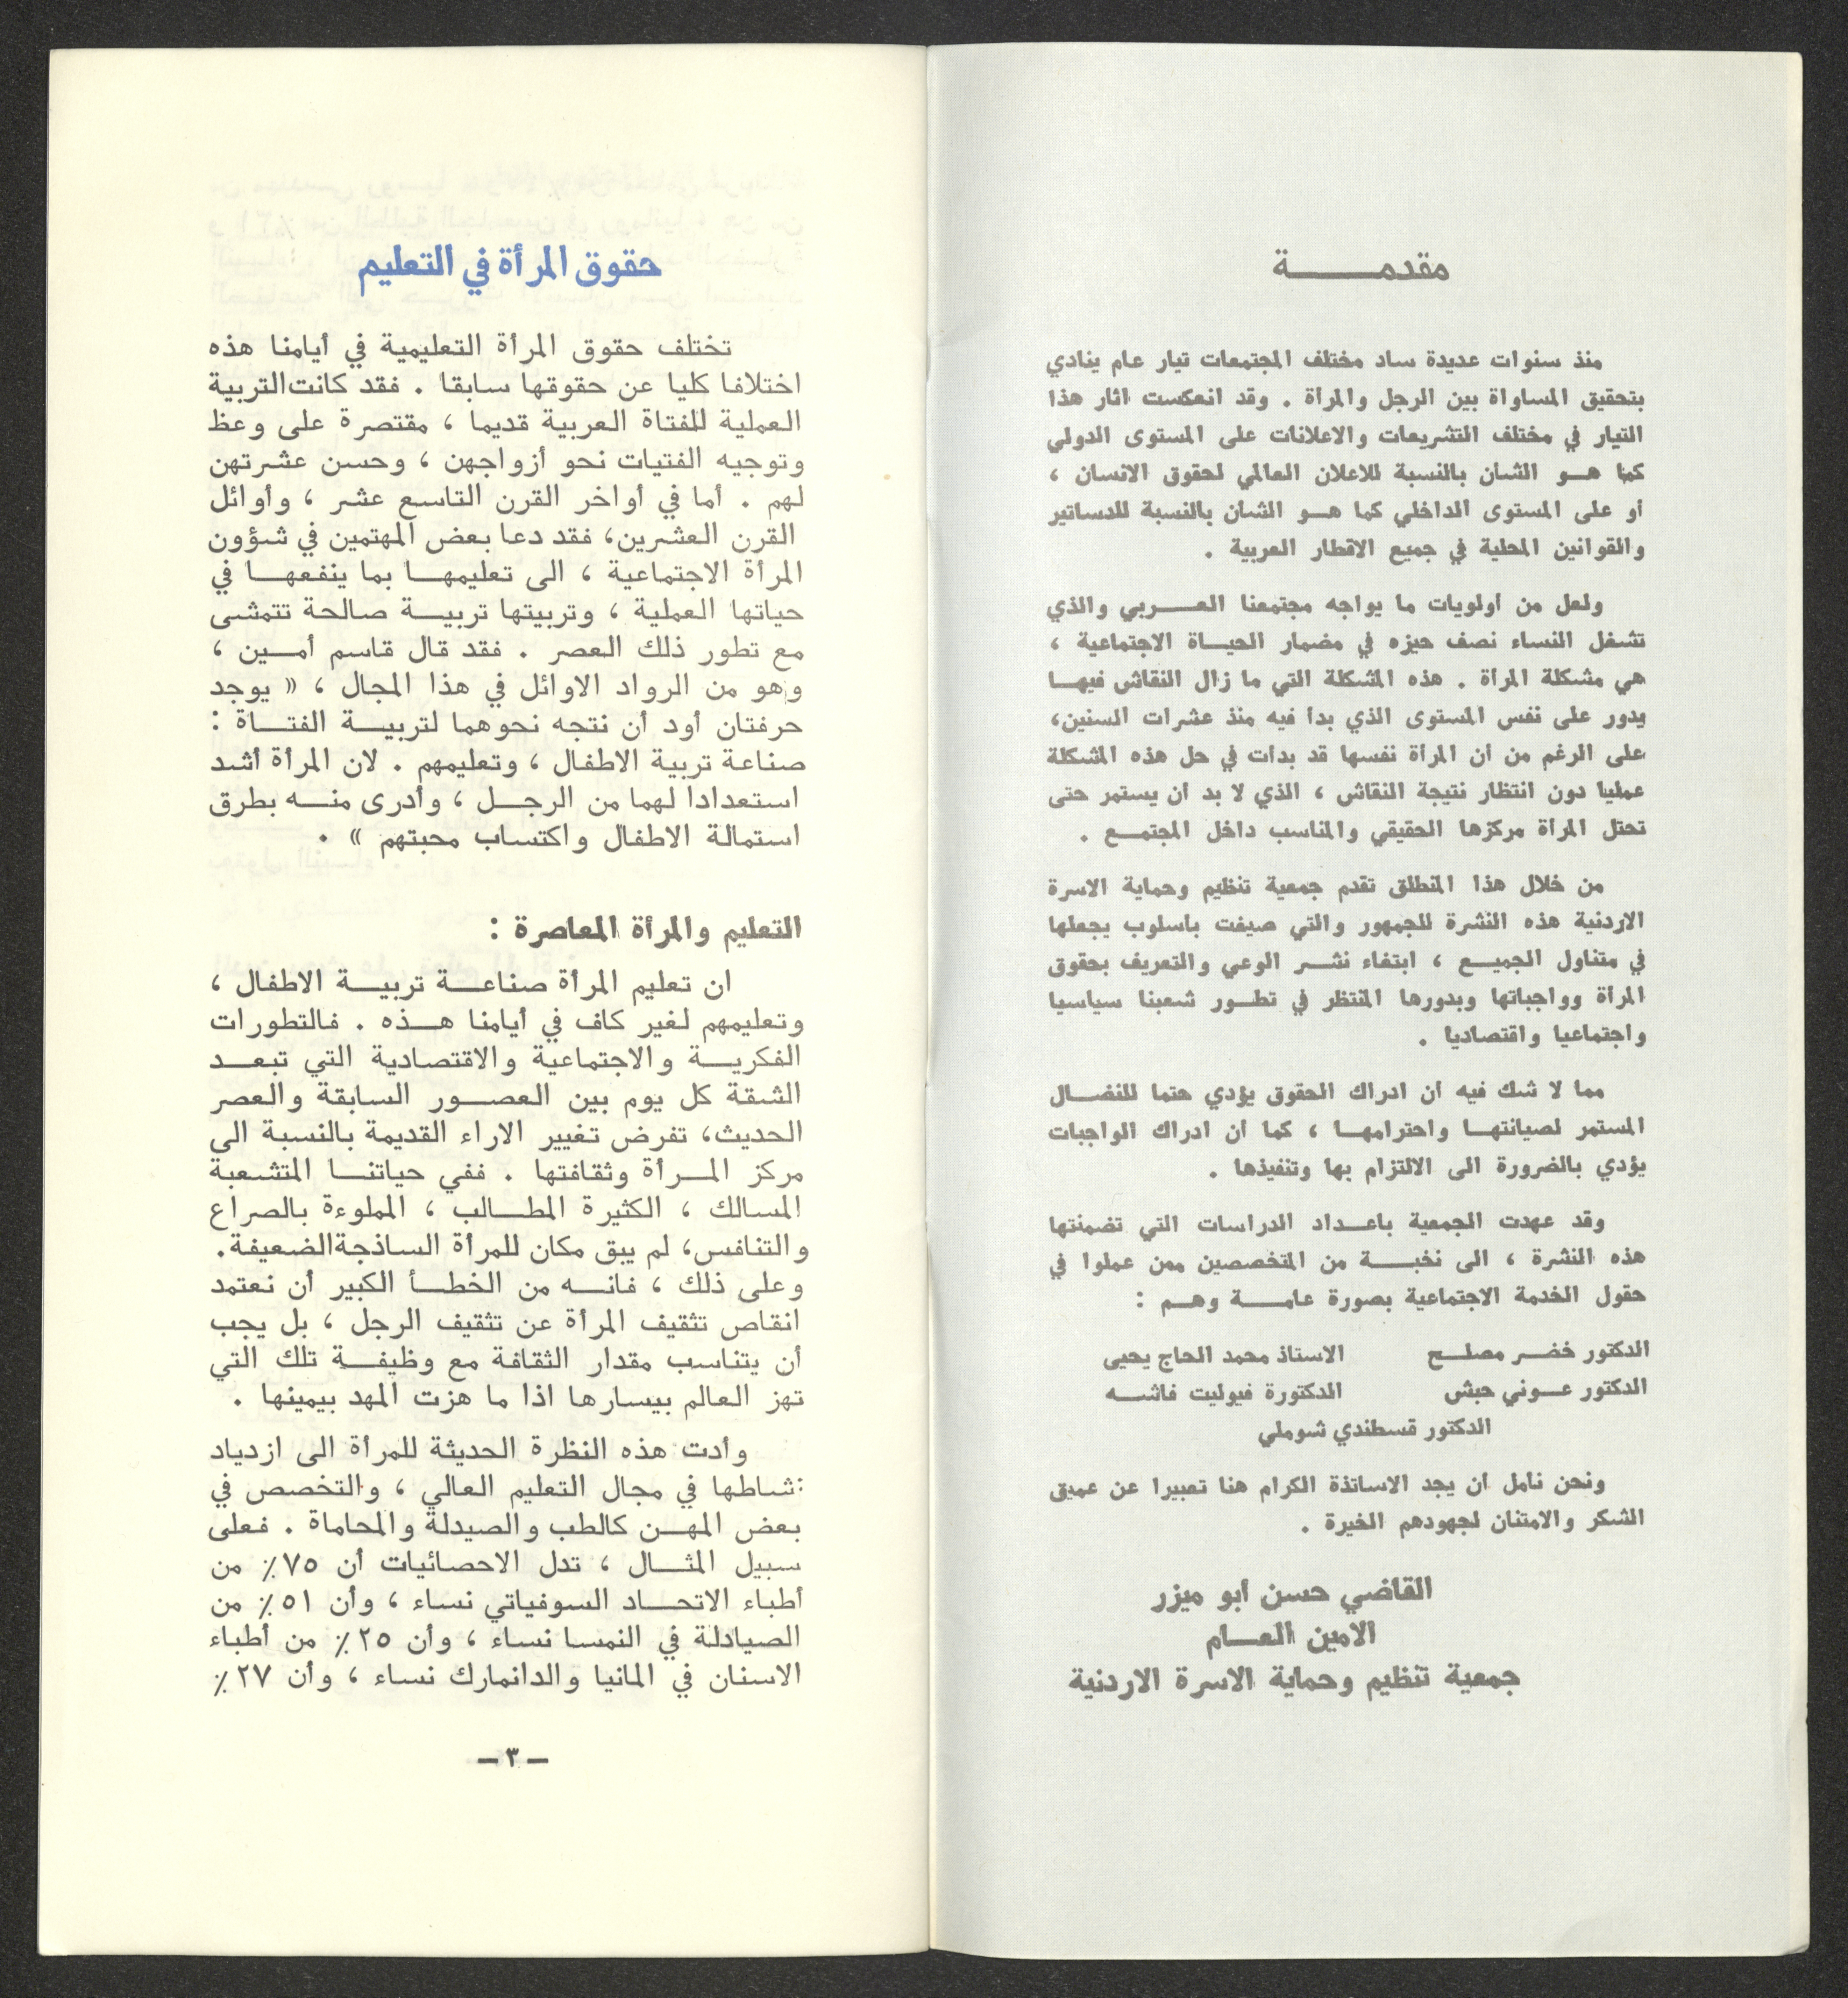 مقدمـــــــــة
منذ سنوات عديدة ساد مختلف المجتمعات تيار عام ينادي
بتحقيق المساواة بين الرجل والمرأة . وقد انعكست اثار هذا
التيار في مختلف التشريعات والاعلانات على المستوى الدولي
كما هــو الشأن بالنسبة للاعلان العالمي لحقوق الانسان ،
أو على المستوى الداخلي كما هــو الشأن بالنسبة للدساتير
والقوانين المحلية في جميع الاقطار العربية .
ولعل من أولويات ما يواجه مجتمعنا العـــربي والذي
تشغل النساء نصف حيزه في مضمار الحيــاة الاجتماعية ،
هي مشكلة المرأة . هذه المشكلة التي ما زال النقاش فيهــا
يدور على نفس المستوى الذي بدأ فيه منذ عشرات السنين،
على الرغم من أن المرأة نفسها قد بدأت في حل هذه المشكلة
عمليا دون انتظار نتيجة النقاش ، الذي لا بد أن يستمر حتى
تحتل المرأة مركزها الحقيقي والمناسب داخل المجتمــع .
من خلال هذا المنطلق تقدم جمعية تنظيم وحماية الاسرة
الاردنية هذه النشرة للجمهور والتي صيغت بأسلوب يجعلها
في متناول الجميــع ، ابتغاء نشــر الوعي والتعريف بحقوق
المرأة وواجباتها وبدورها المنتظر في تطــور شعبنا سياسيا
واجتماعيا واقتصاديا .
مما لا شك فيه أن ادراك الحقوق يؤدي حتما للنضــال
المستمر لصيانتهــا واحترامهــا ، كما أن ادراك الواجبات
يؤدي بالضرورة الى الالتزام بها وتنفيذها .
وقد عهدت الجمعية باعــداد الدراسات التي تضمنتها
هذه النشرة ، الى نخبـــة من المتخصصين ممن عملوا في
حقول الخدمة الاجتماعية بصورة عامـــة وهــم :
الدكتور خضــر مصلــح الاستاذ محمد الحاج يحيى
الدكتور عــوني حبش الدكتورة فيوليت فاشــه
الدكتور قسطندي شوملي
ونحن نأمل أن يجد الاساتذة الكرام هنا تعبيرا عن عميق
الشكر والامتنان لجهودهم الخيرة .
القاضي حسن أبو ميزر
الامين العــام
جمعية تنظيم وحماية الاسرة الاردنية
حقوق المرأة في التعليم
تختلف حقوق المرأة التعليمية في أيامنا هذه
اختلافا كليا عن حقوقها سابقا . فقد كانت التربية
العملية للفتاة العربية قديما ، مقتصرة على وعظ
وتوجيه الفتيات نحو أزواجهن ، وحسن عشرتهن
لهم . أما في أواخر القرن التاسع عشر ، وأوائل
القرن العشرين، فقد دعا بعض المهتمين في شؤون
المرأة الاجتماعية ، الى تعليمهــا بما ينفعهــا في
حياتها العملية ، وتربيتها تربيــة صالحة تتمشى
مع تطور ذلك العصر . فقد قال قاسم أمــين ،
وهو من الرواد الاوائل في هذا المجال ، « يوجد
حرفتان أود أن نتجه نحوهما لتربيــة الفتــاة :
صناعة تربية الاطفال ، وتعليمهم . لان المرأة أشد
استعدادا لهما من الرجــل ، وأدرى منــه بطرق
استمالة الاطفال واكتساب محبتهم » .
التعليم والمرأة المعاصرة :
ان تعليم المرأة صناعــة تربيــة الاطفال ،
وتعليمهم لغير كاف في أيامنا هــذه . فالتطورات
الفكريــة والاجتماعية والاقتصادية التي تبعــد
الشقة كل يوم بين العصــور السابقة والعصر
الحديث، تفرض تغيير الاراء القديمة بالنسبة الى
مركز المــرأة وثقافتها . ففي حياتنــا المتشعبة
المسالك ، الكثيرة المطــالب ، المملوءة بالصراع
والتنافس، لم يبق مكان للمرأة الساذجة الضعيفة.
وعلى ذلك ، فانــه من الخطــأ الكبير أن نعتمد
انقاص تثقيف المرأة عن تثقيف الرجل ، بل يجب
أن يتناسب مقدار الثقافة مع وظيفــة تلك التي
تهز العالم بيسارها اذا ما هزت المهد بيمينها .
وأدت هذه النظرة الحديثة للمرأة الى ازدياد
نشاطها في مجال التعليم العالي ، والتخصص في
بعض المهــن كالطب والصيدلة والمحاماة . فعلى
سبيل المثــال ، تدل الاحصائيات أن ٧٥٪ من
أطباء الاتحــاد السوفياتي نساء ، وأن ٥١٪ من
الصيادلة في النمسا نساء ، وأن ٢٥٪ من أطباء
الاسنان في المانيا والدانمارك نساء ، وأن ٢٧٪
– ٣ –